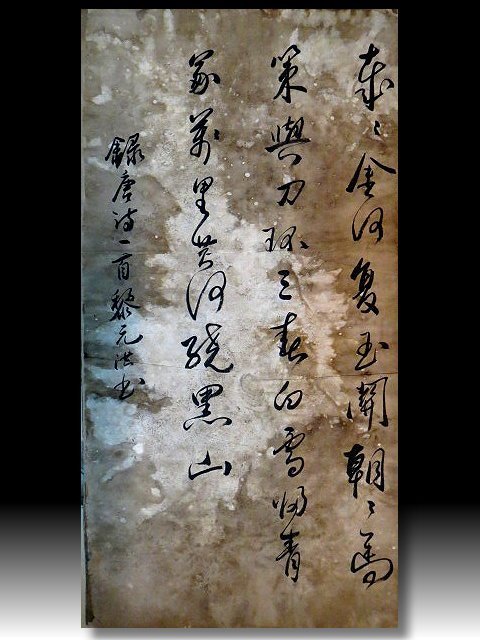 歲々金河復玉關朝々馬
策與刀環三春白雪歸青
冢萬里黄河繞黑山
錄唐詩一首黎元洪書